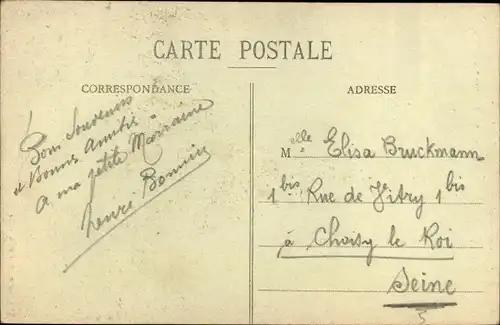 CARTE POSTALE
CORRESPONDANCE
Bon Souvenir
et Bonne Amitié
A ma petite Marraine
Henri
ADRESSE
Melle Elisa Bruckmann
1 bis Rue de Vitry 1 bis
à Choisy le Roi
Seine